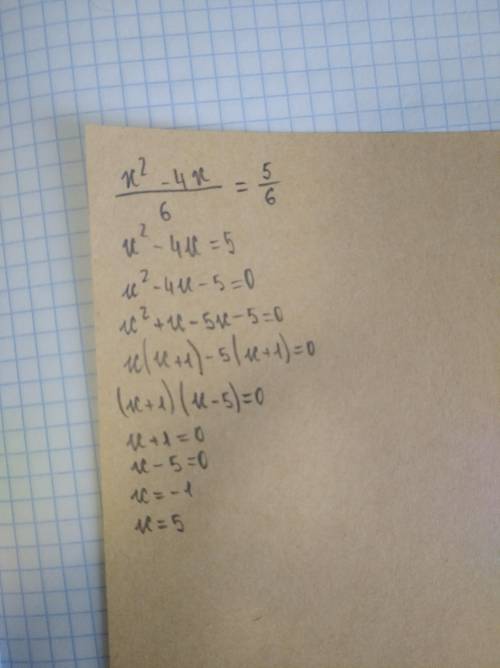 x² - 4x / 6 = 5/6
x² - 4x = 5
x² - 4x - 5 = 0
x² + x - 5x - 5 = 0
x(x+1) - 5(x+1) = 0
(x+1)(x-5) = 0
x + 1 = 0
x - 5 = 0
x = -1
x = 5